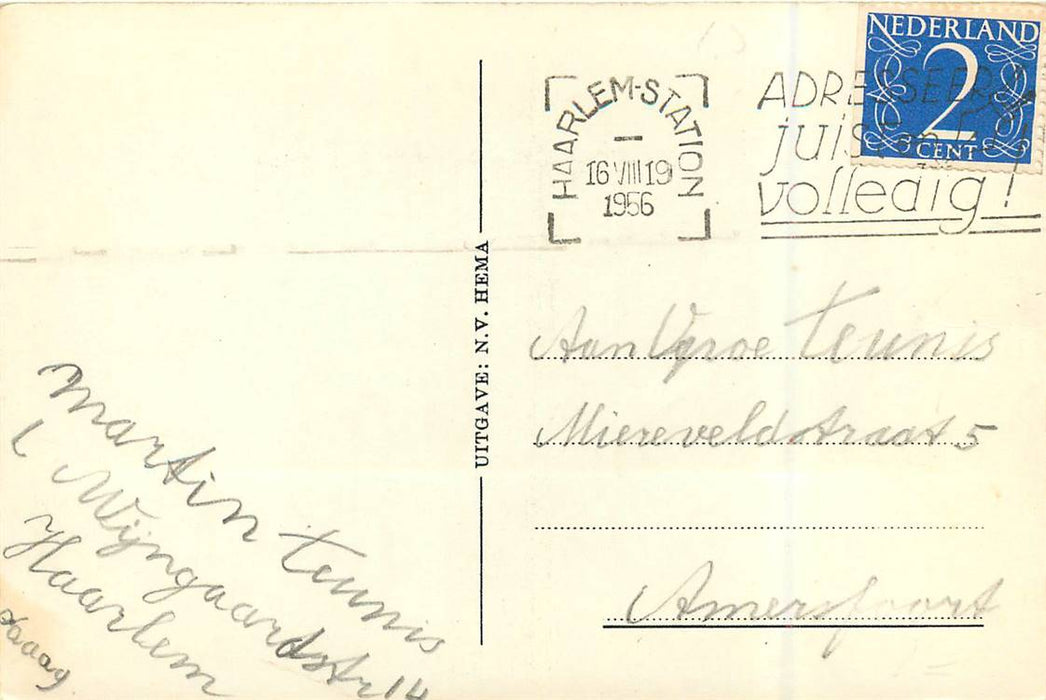 NEDERLAND
2
CENT
HAARLEM-STATION
16 VIII 19
1956
ADRESSEER
juist en
volledig!
UITGAVE: N.V. HEMA
Aan Teunis
Miereveldstraat 5
Amersfoort
Martin Teunis
Wijngaardstr 14
Haarlem